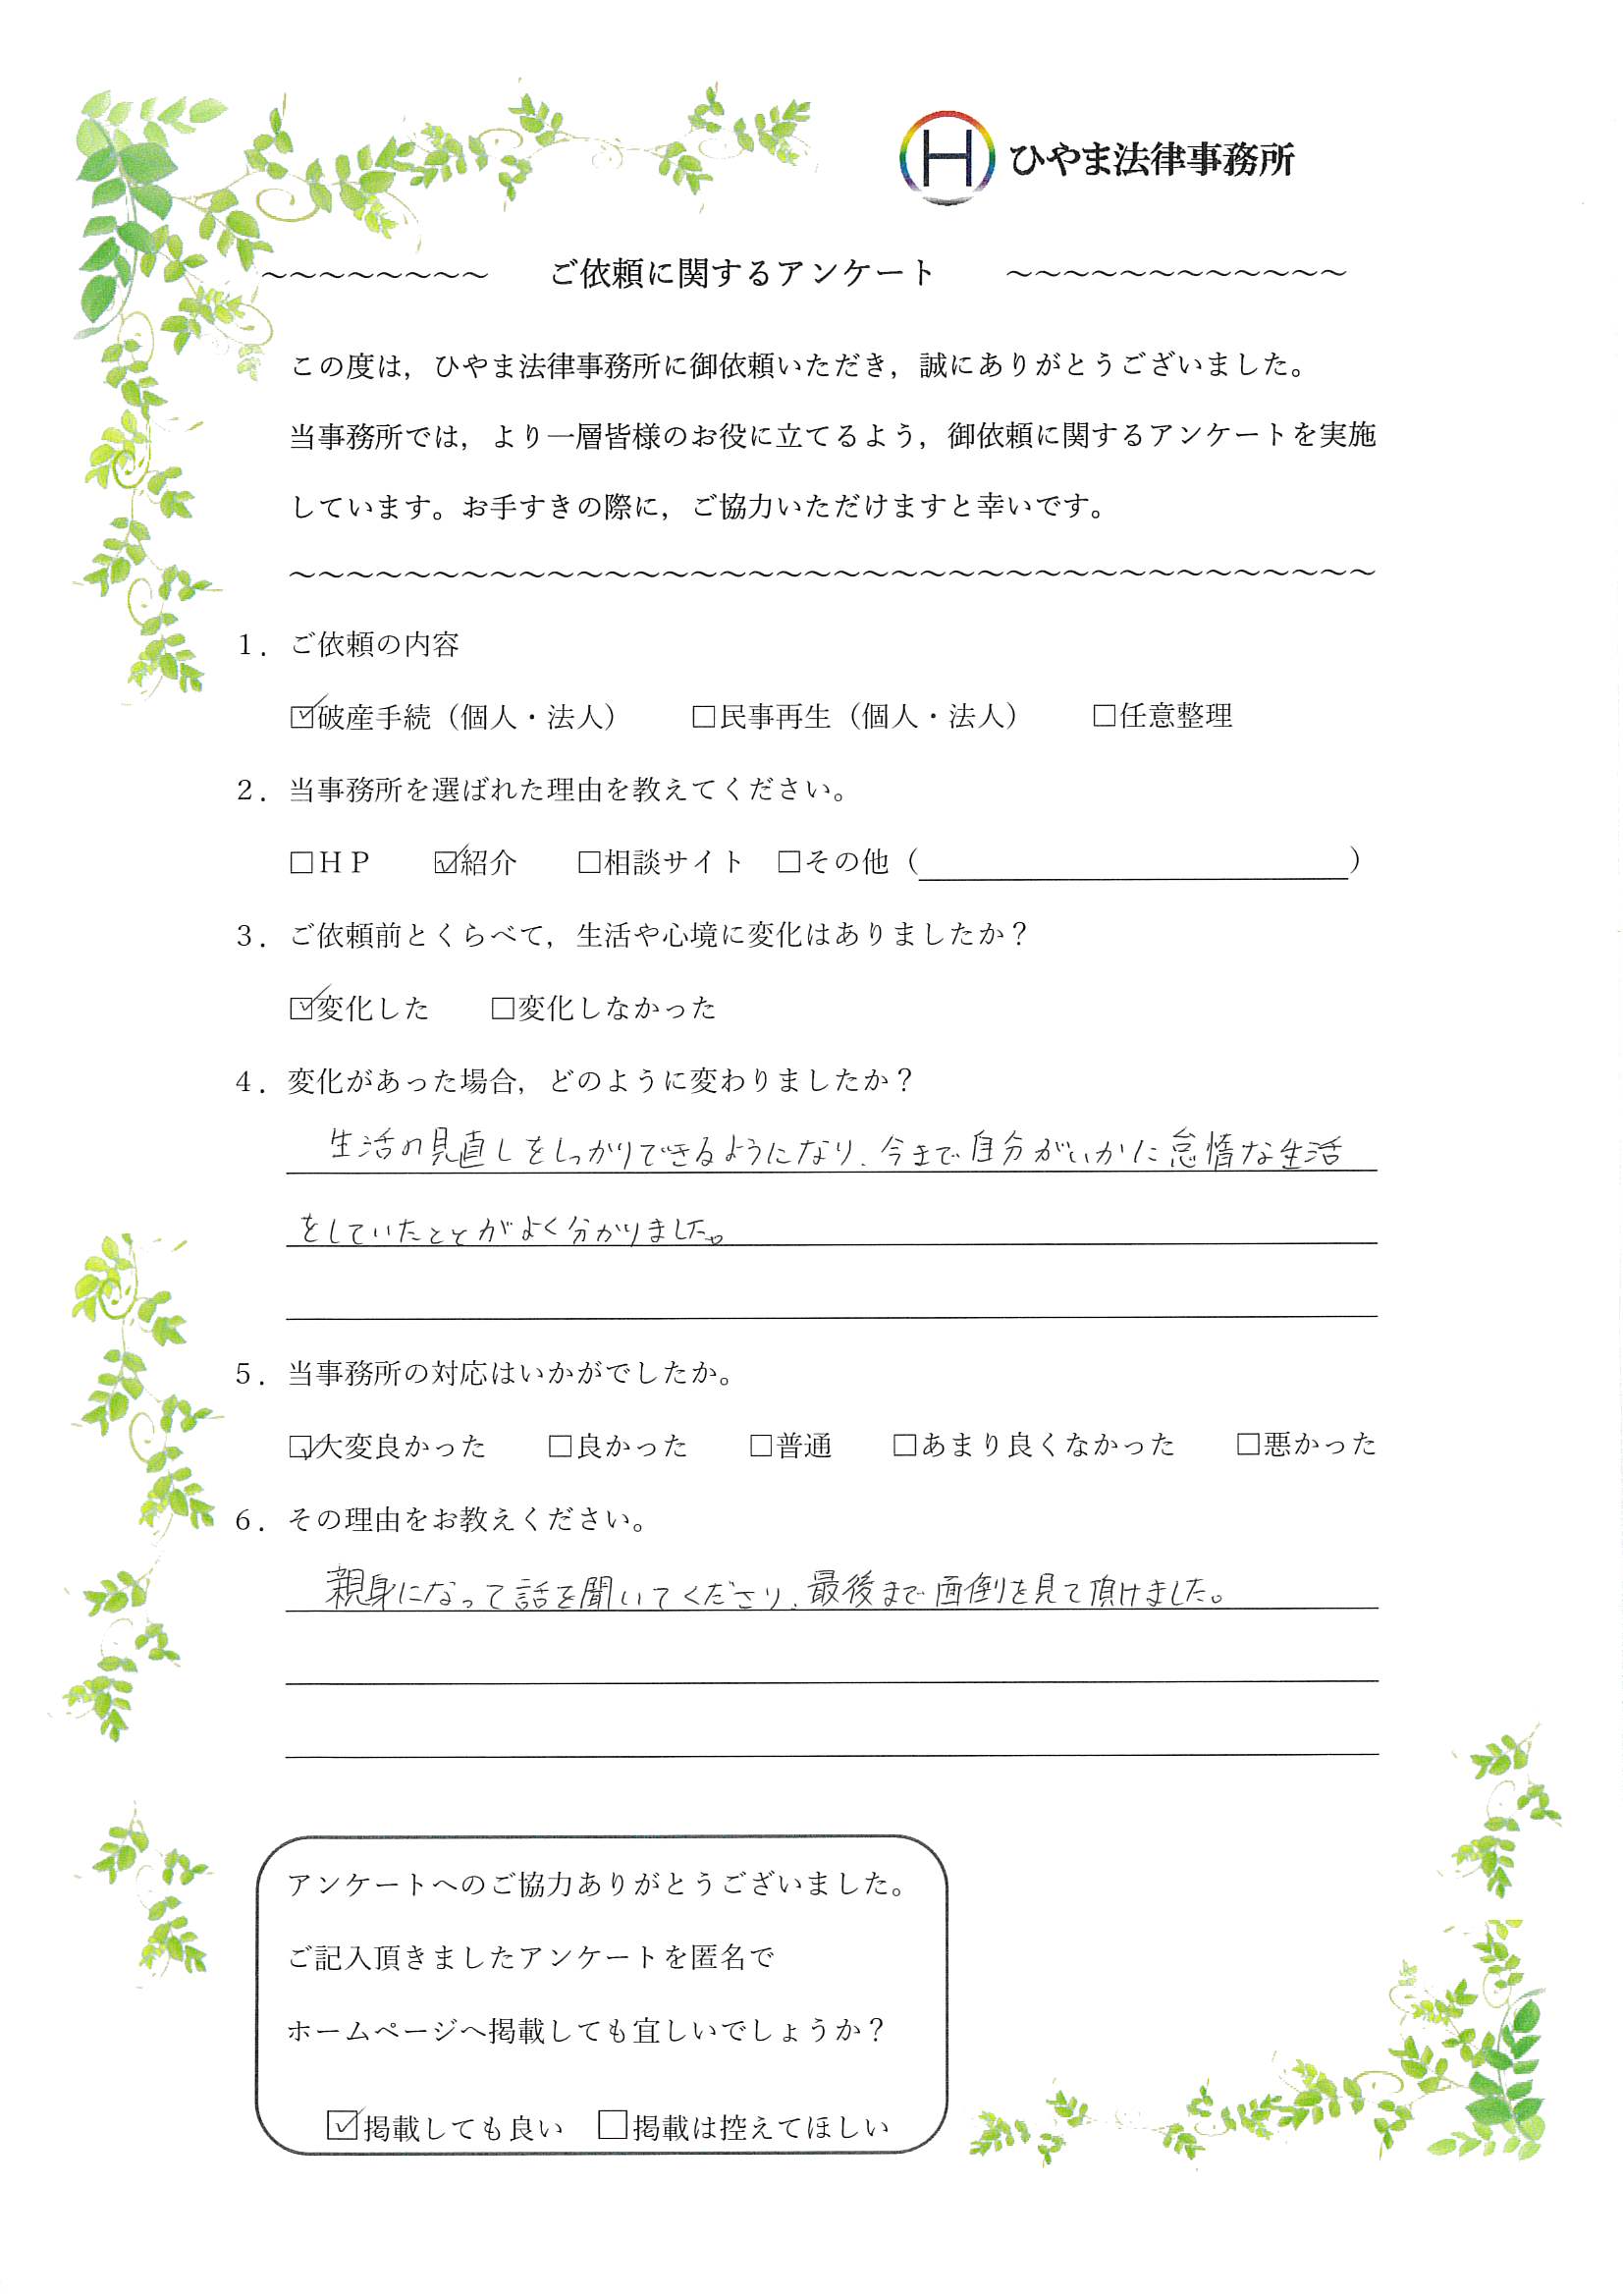 H ひやま法律事務所
～～～～～～～～ ご依頼に関するアンケート ～～～～～～～～～～～～
この度は，ひやま法律事務所に御依頼いただき，誠にありがとうございました。
当事務所では，より一層皆様のお役に立てるよう，御依頼に関するアンケートを実施
しています。お手すきの際に，ご協力いただけますと幸いです。
～～～～～～～～～～～～～～～～～～～～～～～～～～～～～～～～～～～～～～
１．ご依頼の内容
☑破産手続（個人・法人） □民事再生（個人・法人） □任意整理
２．当事務所を選ばれた理由を教えてください。
□ＨＰ ☑紹介 □相談サイト □その他（　　　　　　）
３．ご依頼前とくらべて，生活や心境に変化はありましたか？
☑変化した □変化しなかった
４．変化があった場合，どのように変わりましたか？
生活の見直しをしっかりできるようになり、今まで自分がいかに怠惰な生活
をしていたことがよく分かりました。
５．当事務所の対応はいかがでしたか。
☑大変良かった □良かった □普通 □あまり良くなかった □悪かった
６．その理由をお教えください。
親身になって話を聞いてくださり、最後まで面倒を見て頂けました。
アンケートへのご協力ありがとうございました。
ご記入頂きましたアンケートを匿名で
ホームページへ掲載しても宜しいでしょうか？
☑掲載しても良い □掲載は控えてほしい